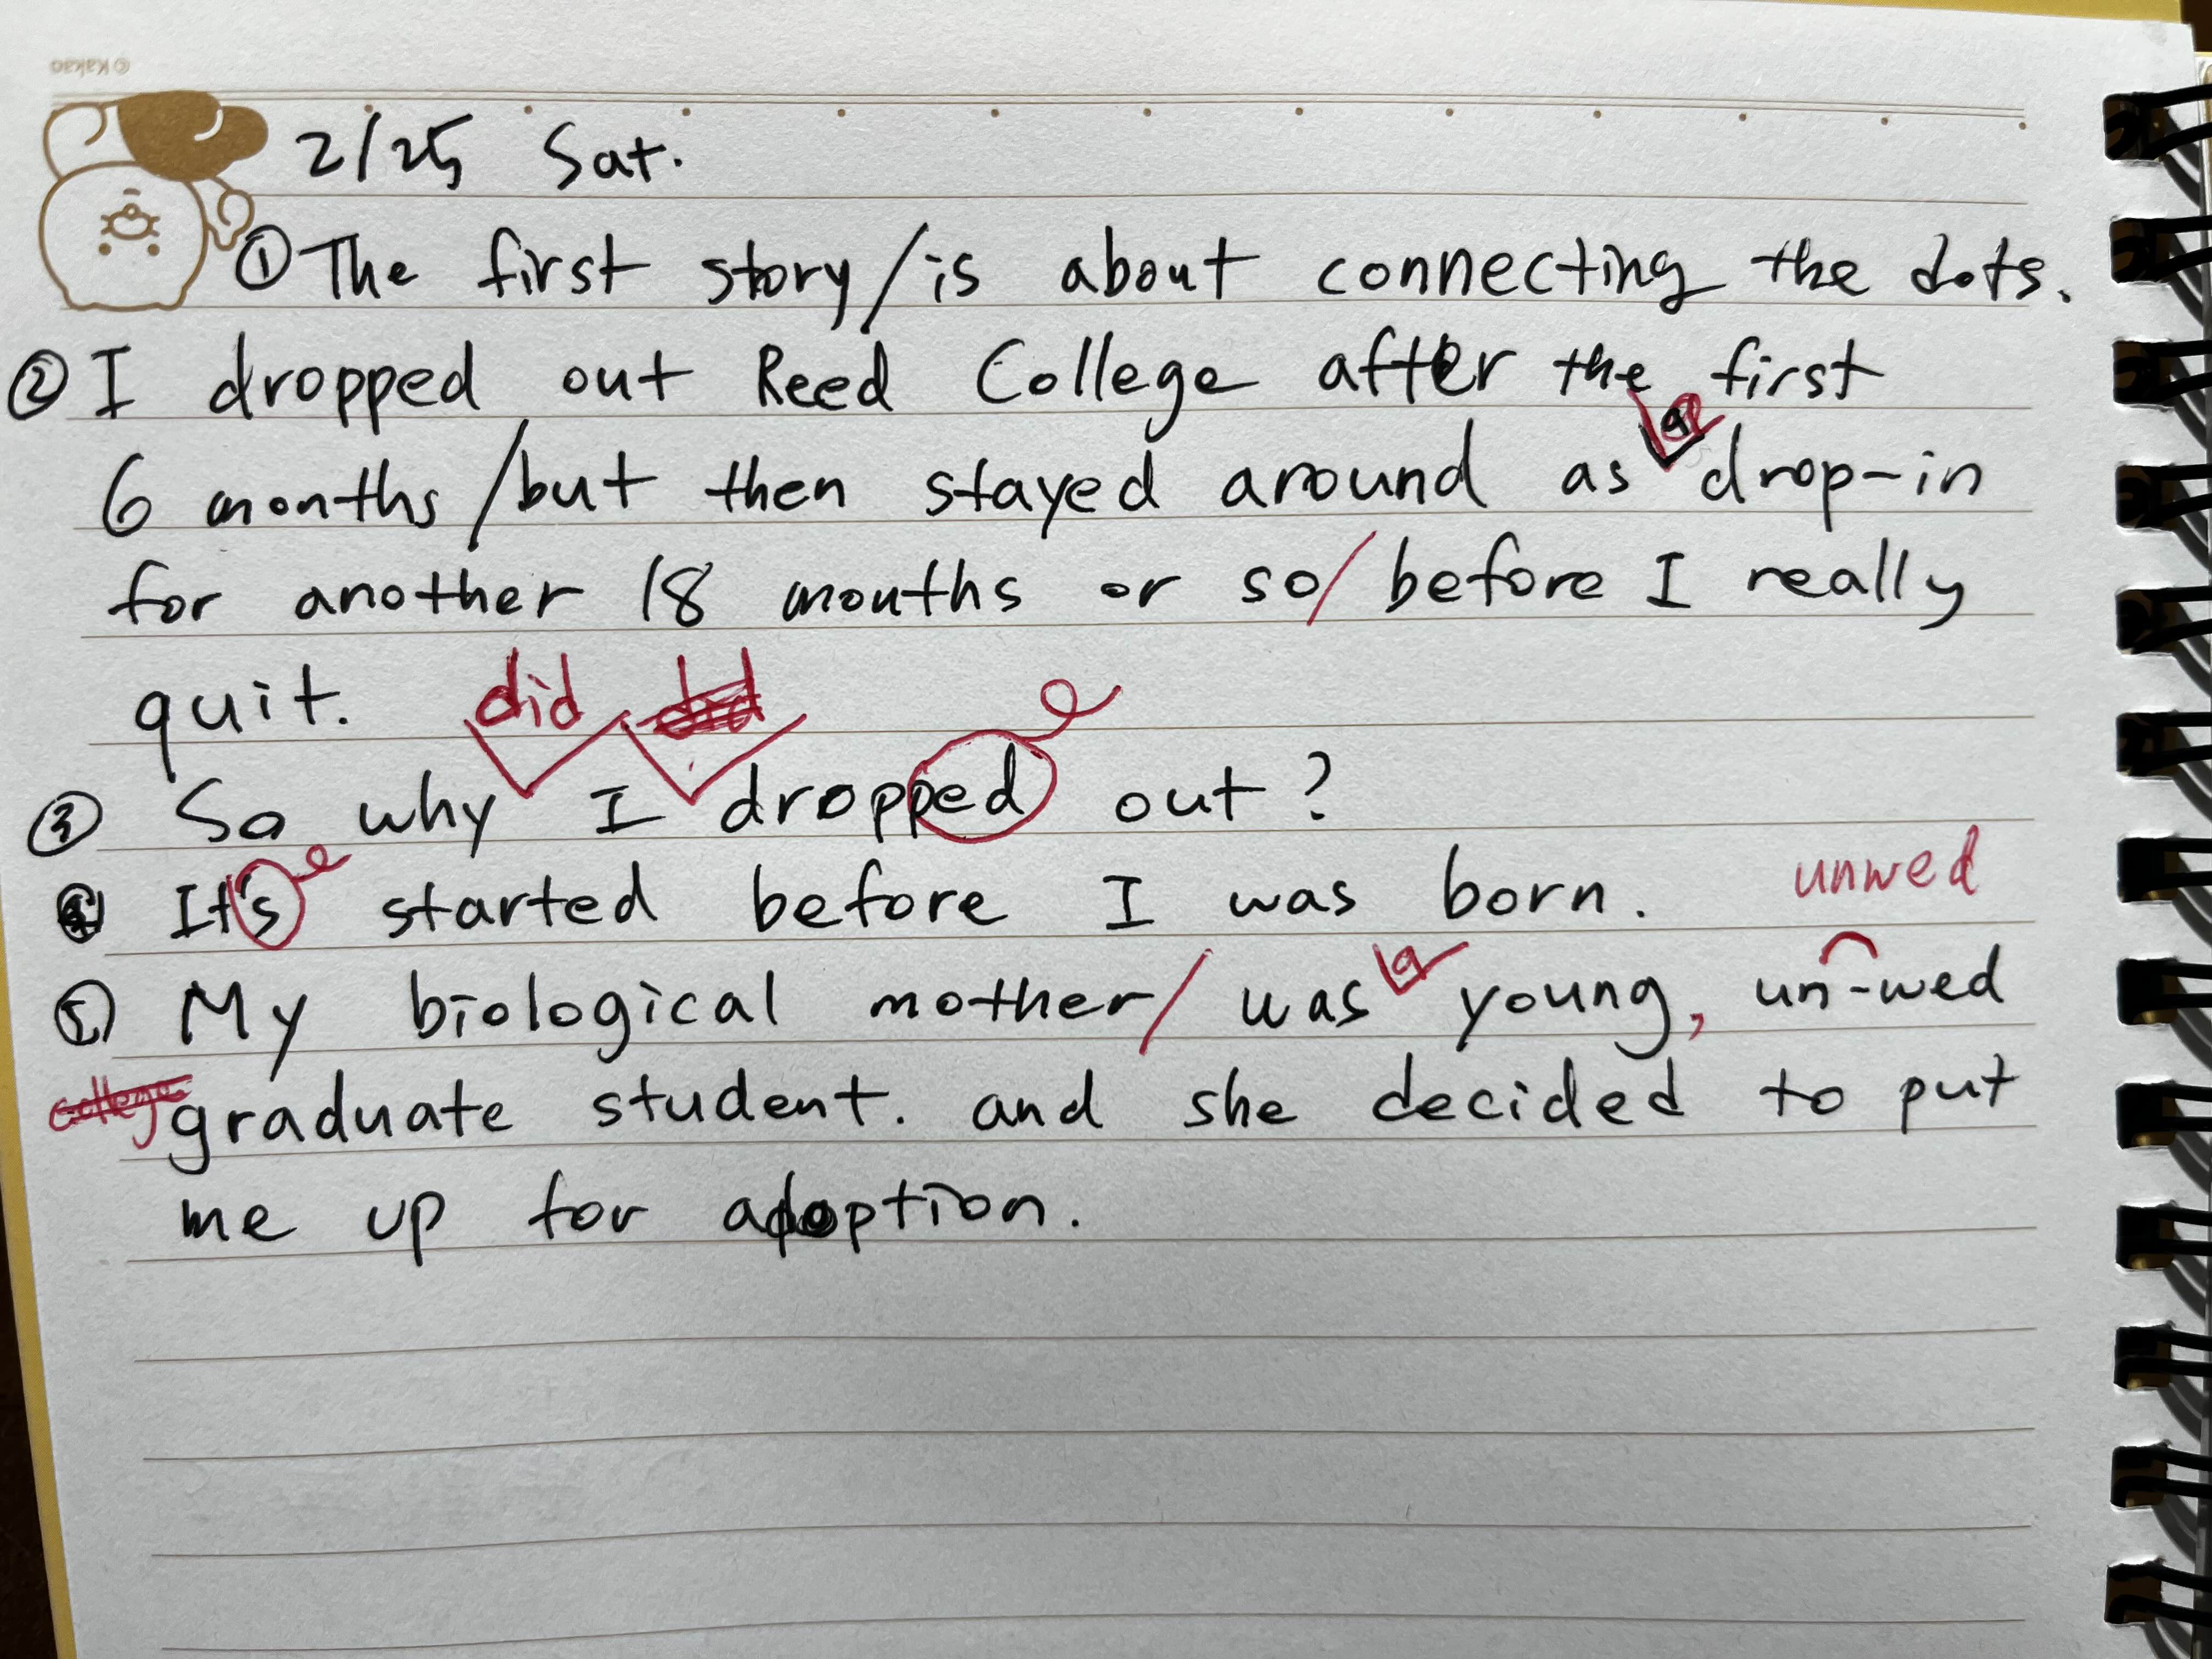 © kakao
2/25 Sat.
① The first story/is about connecting the dots.
② I dropped out Reed College after the first
a
6 months/but then stayed around as drop-in
for another 18 months or so/before I really
quit.
did did
③ So why I dropped out?
④ It's started before I was born.
unwed
a
⑤ My biological mother/was young, un-wed
college
graduate student. and she decided to put
me up for adoption.